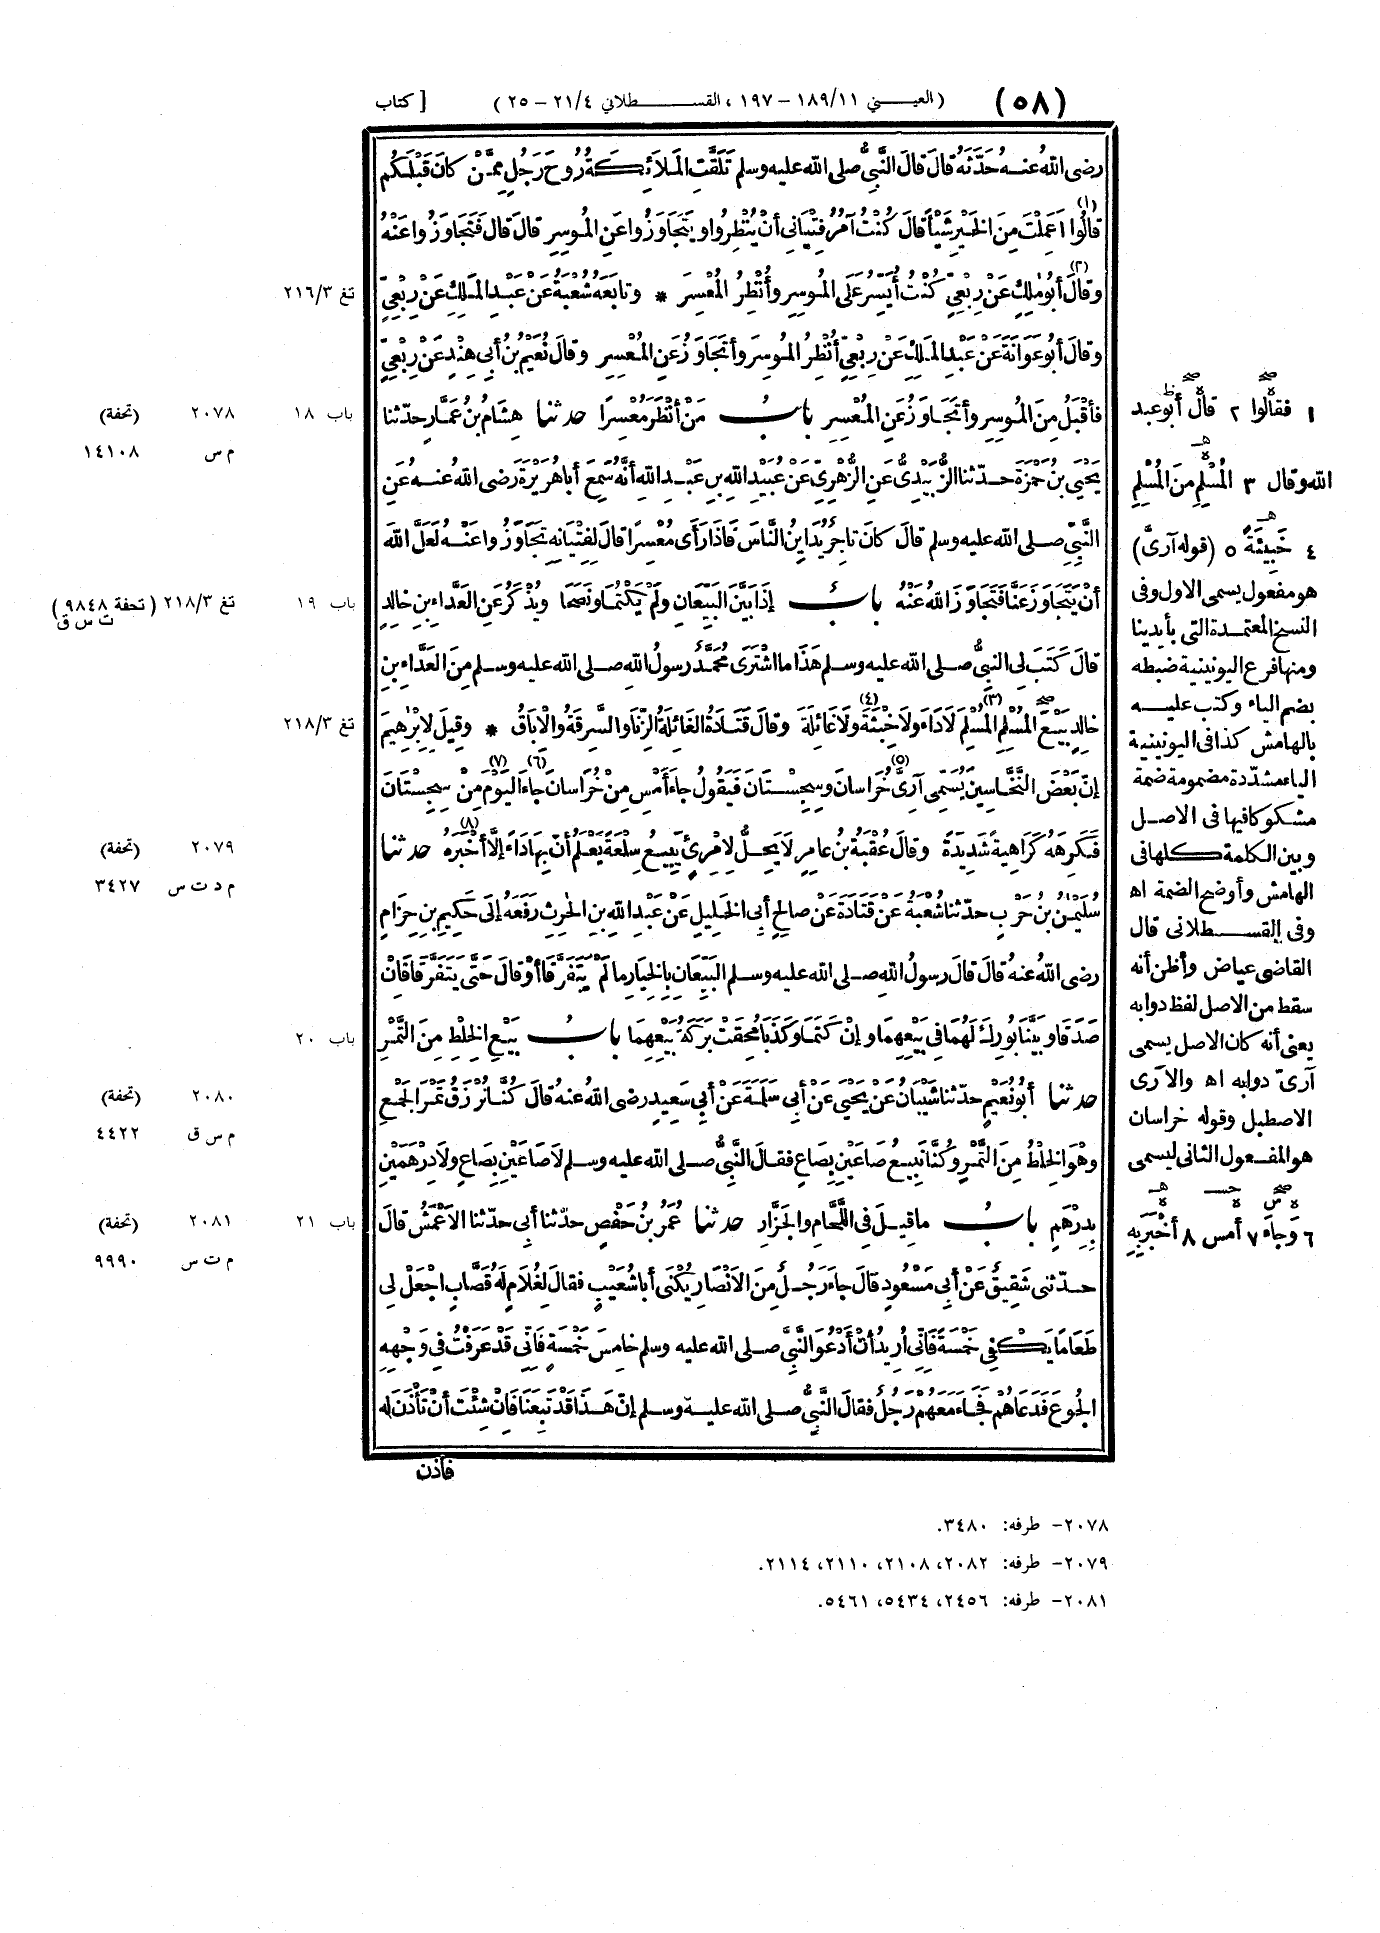 (٥٨) (العيني ١٨٩/١١ – ١٩٧، القسطلاني ٢١/٤ – ٢٥) [ كتاب
رضى اللهُ عنه حَدَّثَهُ قالَ قالَ النَّبىُّ صلى الله عليه وسلم تَلَقَّتِ المَلَائِكَةُ رُوحَ رَجُلٍ مِمَّنْ كانَ قَبْلَكُم
قالُوا (١) أَعَمِلْتَ مِنَ الخَيْرِ شَيْأً قالَ كُنْتُ آمُرُ فِتْيَانِى أنْ يُنْظِرُوا ويَتَجَاوَزُوا عَنِ المُوسِرِ قالَ قالَ فَتَجَاوَزُوا عَنْهُ
وقالَ (٢) أبُو مٰلِكٍ عَنْ رِبْعِىٍّ كُنْتُ أُيَسِّرُ عَلَى المُوسِرِ وأُنْظِرُ المُعْسِرَ * وتابَعَهُ شُعْبَةُ عَنْ عَبْدِ المَلِكِ عَنْ رِبْعِىٍّ
وقالَ أبُو عَوَانَةَ عَنْ عَبْدِ المَلِكِ عَنْ رِبْعِىٍّ أُنْظِرُ المُوسِرَ وأَتَجَاوَزُ عَنِ المُعْسِرِ وقالَ نُعَيْمُ بنُ أبِى هِنْدٍ عَنْ رِبْعِىٍّ
فأَقْبَلُ مِنَ المُوسِرِ وأَتَجَاوَزُ عَنِ المُعْسِرِ بابُ مَنْ أنْظَرَ مُعْسِرًا حدثنا هِشَامُ بنُ عَمَّارٍ حدّثنا
يَحْيَى بنُ حَمْزَةَ حدّثنا الزُّبَيْدِىُّ عَنِ الزُّهْرِىِّ عَنْ عُبَيْدِ اللهِ بنِ عَبْدِ اللهِ أنَّهُ سَمِعَ أبا هُرَيْرَةَ رضى اللهُ عنه عَنِ
النَّبِىِّ صلى الله عليه وسلم قالَ كانَ تاجِرٌ يُدَايِنُ النَّاسَ فَإذَا رَأَى مُعْسِرًا قالَ لِفِتْيَانِهِ تَجَاوَزُوا عَنْهُ لَعَلَّ اللهَ
أنْ يَتَجَاوَزَ عَنَّا فَتَجَاوَزَ اللهُ عَنْهُ بابٌ إذَا بَيَّنَ البَيِّعَانِ ولَمْ يَكْتُمَا ونَصَحَا ويُذْكَرُ عَنِ العَدَّاءِ بنِ خالِدٍ
قالَ كَتَبَ لِى النَّبىُّ صلى الله عليه وسلم هَذَا ما اشْتَرَى مُحَمَّدٌ رسولُ اللهِ صلى الله عليه وسلم مِنَ العَدَّاءِ بنِ
خالِدٍ بَيْعَ المُسْلِمِ المُسْلِمَ (٣) لَا دَاءَ ولَا خِبْثَةَ (٤) ولَا غَائِلَةَ وقالَ قَتَادَةُ الغَائِلَةُ الزِّنَا والسَّرِقَةُ والْإِبَاقُ * وقِيلَ لِإِبْرٰهِيمَ
إنَّ بَعْضَ النَّخَّاسِينَ يُسَمِّى آرِىَّ (٥) خُرَاسانَ وسِجِسْتَانَ فَيَقُولُ جاءَ أَمْسِ مِنْ خُرَاسانَ جاءَ (٦) اليَوْمَ (٧) مِنْ سِجِسْتَانَ
فَكَرِهَهُ كَرَاهِيةً شَدِيدَةً وقالَ عُقْبَةُ بنُ عامِرٍ لَا يَحِلُّ لِامْرِئٍ يَبِيعُ سِلْعَةً يَعْلَمُ أنَّ بِهَا دَاءً إلَّا أَخْبَرَهُ (٨) حدثنا
سُلَيْمٰنُ بنُ حَرْبٍ حدّثنا شُعْبَةُ عَنْ قَتَادَةَ عَنْ صالِحٍ أبِى الخَلِيلِ عَنْ عَبْدِ اللهِ بنِ الحٰرِثِ رَفَعَهُ إلَى حَكِيمِ بنِ حِزَامٍ
رضى اللهُ عنهُ قالَ قالَ رسولُ اللهِ صلى الله عليه وسلم البَيِّعَانِ بِالخِيَارِ ما لَمْ يَتَفَرَّقَا أوْ قالَ حَتَّى يَتَفَرَّقَا فَإنْ
صَدَقَا وبَيَّنَا بُورِكَ لَهُمَا فِى بَيْعِهِمَا وإنْ كَتَمَا وكَذَبَا مُحِقَتْ بَرَكَةُ بَيْعِهِمَا بابُ بَيْعِ الخِلْطِ مِنَ التَّمْرِ
حدثنا أبُو نُعَيْمٍ حدّثنا شَيْبَانُ عَنْ يَحْيَى عَنْ أبِى سَلَمَةَ عَنْ أبِى سَعِيدٍ رضى اللهُ عنهُ قالَ كُنَّا نُرْزَقُ تَمْرَ الجَمْعِ
وهْوَ الخِلْطُ مِنَ التَّمْرِ وكُنَّا نَبِيعُ صاعَيْنِ بِصَاعٍ فقالَ النَّبىُّ صلى الله عليه وسلم لَا صَاعَيْنِ بِصَاعٍ ولَا دِرْهَمَيْنِ
بِدِرْهَمٍ بابُ ما قِيلَ فِى اللَّحَّامِ والجَزَّارِ حدثنا عُمَرُ بنُ حَفْصٍ حدّثنا أبِى حدّثنا الأَعْمَشُ قالَ
حدّثنى شَقِيقٌ عَنْ أبِى مَسْعُودٍ قالَ جاءَ رَجُلٌ مِنَ الْأَنْصَارِ يُكْنَى أبا شُعَيْبٍ فقالَ لِغُلَامٍ لَهُ قَصَّابٍ اجْعَلْ لِى
طَعَامًا يَكْفِى خَمْسَةً فَإنِّى أُرِيدُ أنْ أَدْعُوَ النَّبىَّ صلى الله عليه وسلم خامِسَ خَمْسَةٍ فَإنِّى قَدْ عَرَفْتُ فِى وَجْهِهِ
الجُوعَ فَدَعَاهُمْ فَجَاءَ مَعَهُمْ رَجُلٌ فقالَ النَّبىُّ صلى الله عليه وسلم إنَّ هَذَا قَدْ تَبِعَنَا فَإنْ شِئْتَ أنْ تَأْذَنَ لَهُ
فأذن
١ فقالوا ٢ قال أبو عبد
الله وقال ٣ المُسْلِمِ مِنَ المُسْلِمِ
٤ خَبِيثَةَ ٥ (قوله آرىّ)
هو مفعول يسمى الاول وفى
النسخ المعتمدة التى بأيدينا
ومنها فرع اليونينية ضبطه
بضم الياء وكتب عليه
بالهامش كذا فى اليونينية
الياء مشدّدة مضمومة ضمة
مشكوكا فيها فى الاصل
وبين الكلمة كلها فى
الهامش وأوضح الضمة اه
وفى القسطلانى قال
القاضى عياض وأظن أنه
سقط من الاصل لفظ دوابه
يعنى أنه كان الاصل يسمى
آرىّ دوابه اه والآرى
الاصطبل وقوله خراسان
هو المفعول الثانى ليسمى
٦ وَجاءَ ٧ أمس ٨ أخْبَرَ بِهِ
تغ ٢١٦/٣
باب ١٨ ٢٠٧٨ (تحفة)
م س ١٤١٠٨
باب ١٩ تغ ٢١٨/٣ (تحفة ٩٨٤٨)
ت س ق
تغ ٢١٨/٣
٢٠٧٩ (تحفة)
م د ت س ٣٤٢٧
باب ٢٠
٢٠٨٠ (تحفة)
م س ق ٤٤٢٢
باب ٢١ ٢٠٨١ (تحفة)
م ت س ٩٩٩٠
٢٠٧٨– طرفه: ٣٤٨٠.
٢٠٧٩– طرفه: ٢٠٨٢، ٢١٠٨، ٢١١٠، ٢١١٤.
٢٠٨١– طرفه: ٢٤٥٦، ٥٤٣٤، ٥٤٦١.